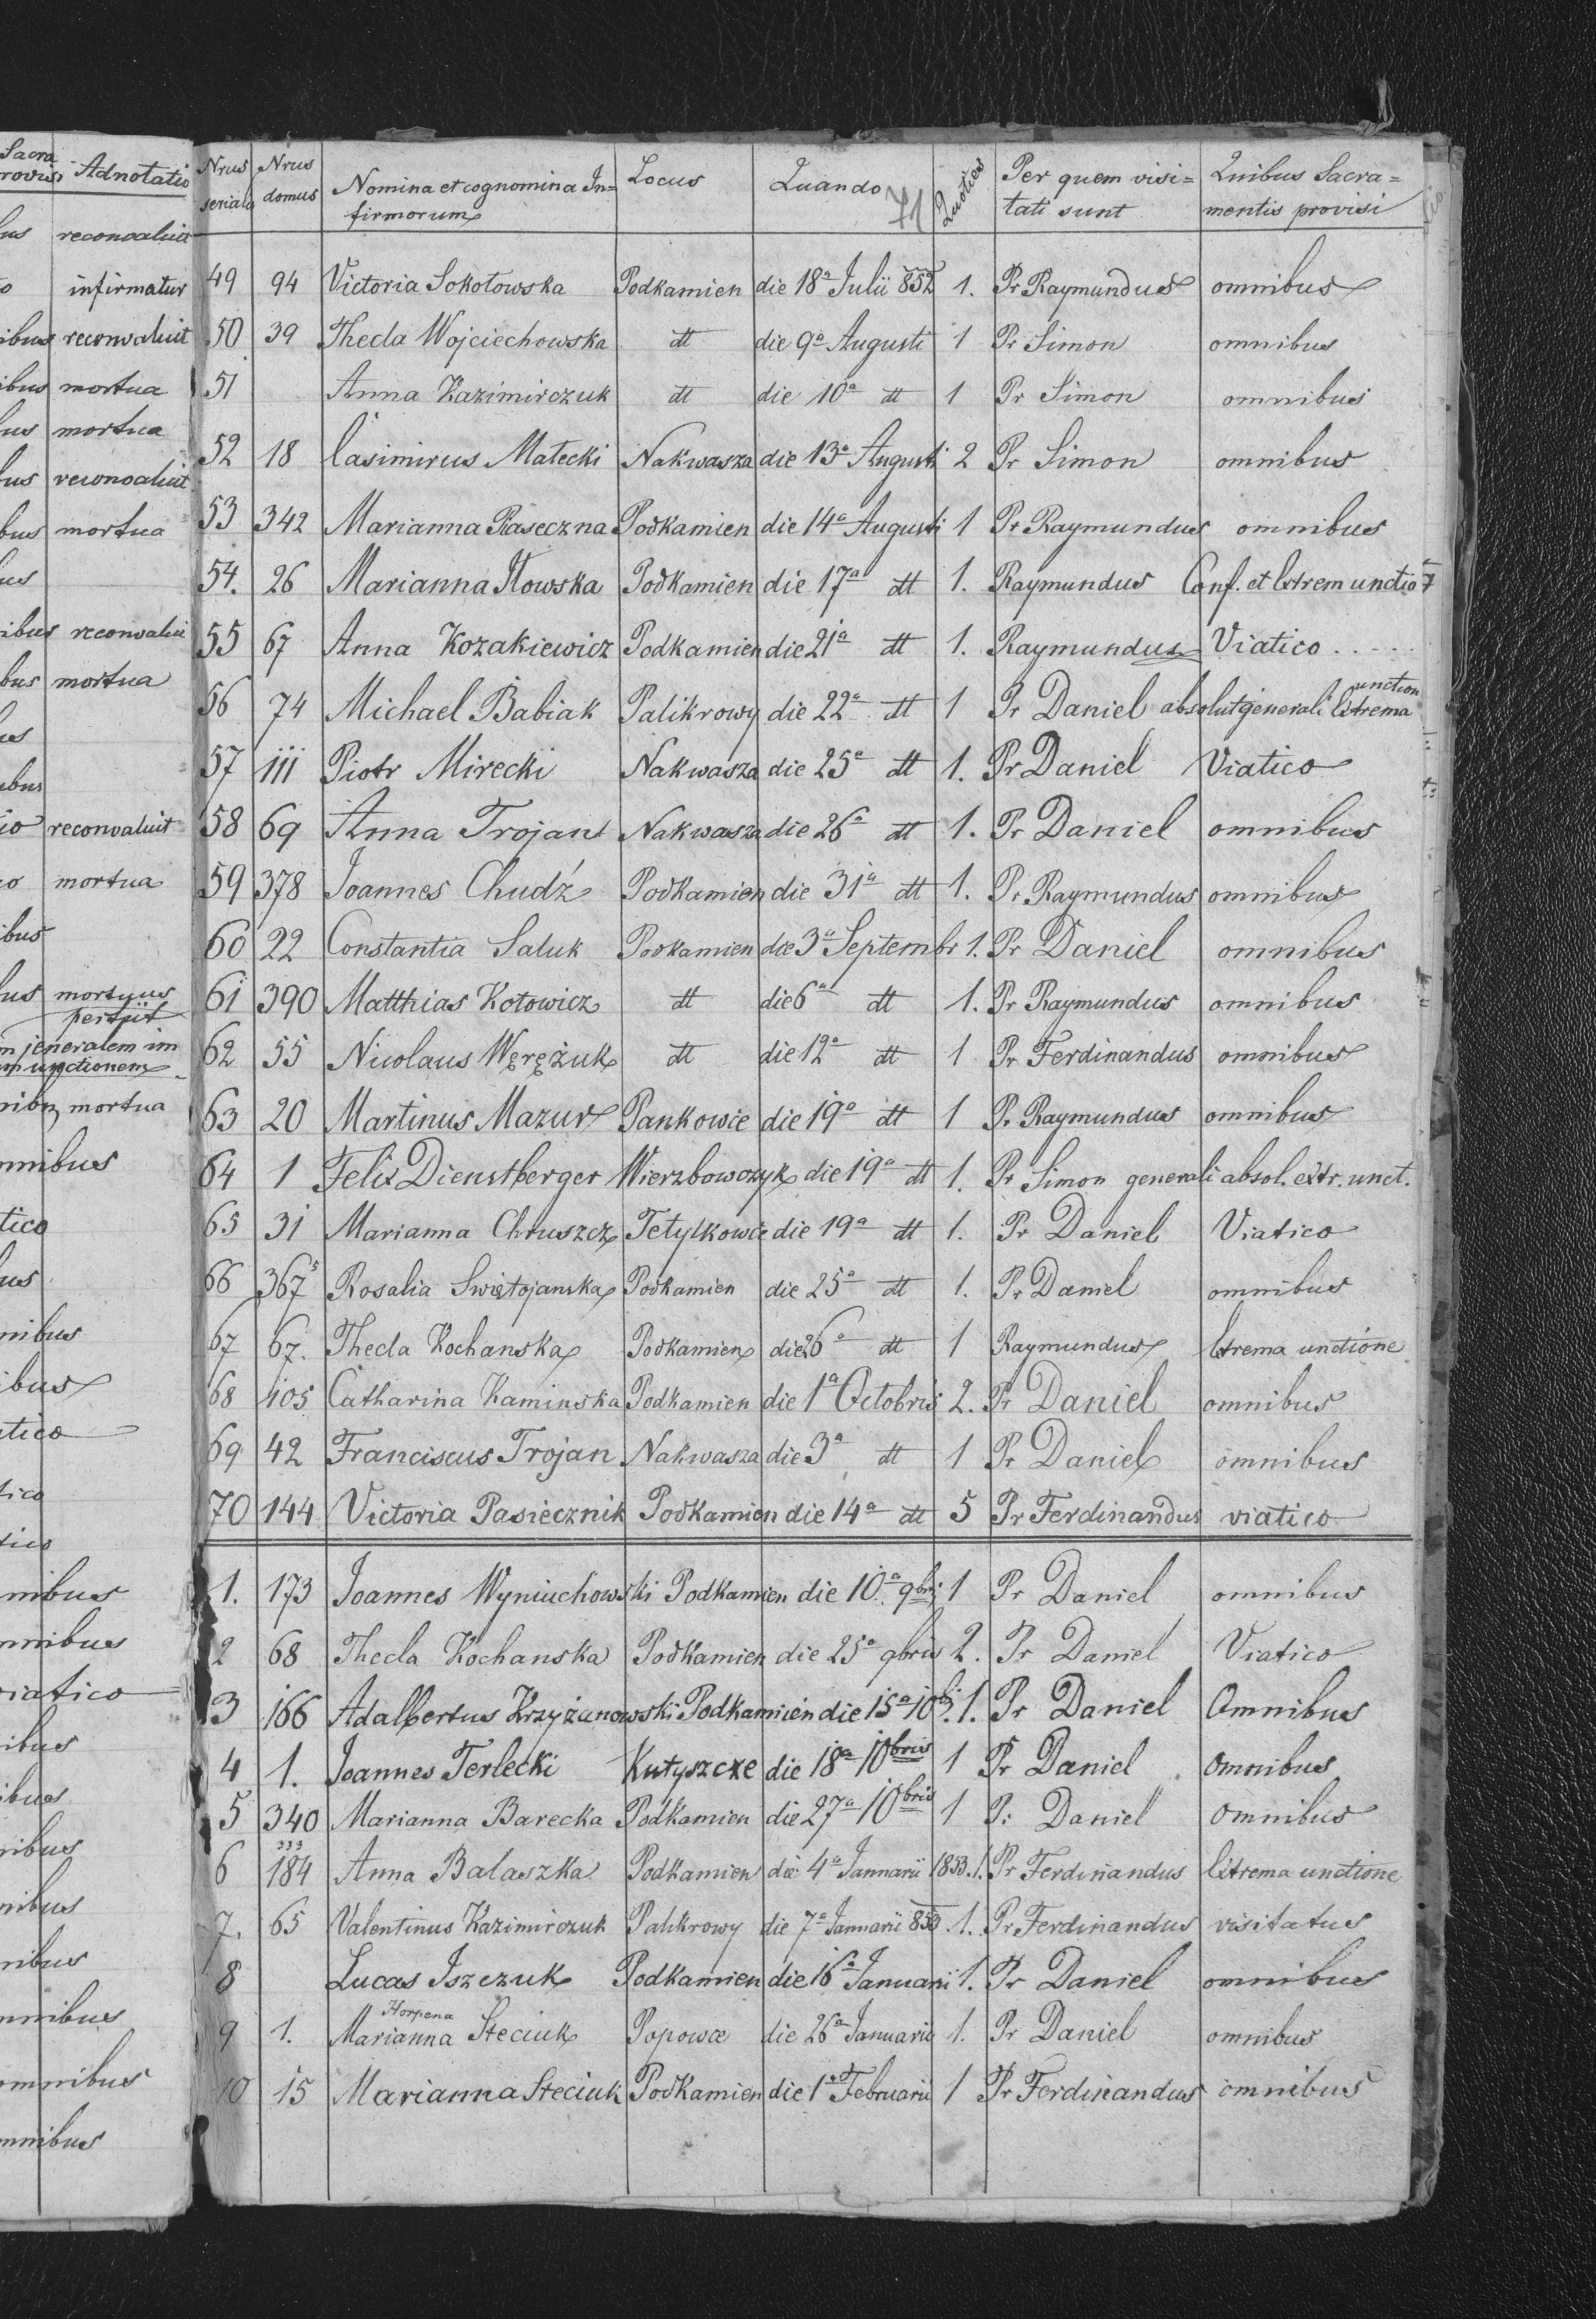 Sacra
provisi Adnotatio
reconvaluit
infirmatur
reconvaluit
mortua
mortua
reconvaluit
mortua
reconvaluit
mortua
reconvaluit
mortua
mortuus
periit
jeneralem im
unctionem
mortua
omnibus
omnibus
viatico
omnibus
omnibus
Nrus seriale Nrus domus Nomina et cognomina In= Locus Quando 71 Quoties Per quem visi= Quibus Sacra=
firmorum tati sunt mentis provisi
49 94 Victoria Sokołowska Podkamien die 18a Julii 852 1. Pr Raymundus omnibus
50 39 Thecla Wojciechowska dt die 9a Augusti 1 Pr Simon omnibus
51 Anna Kazimirczuk dt die 10a dt 1 Pr Simon omnibus
52 18 Casimirus Małecki Nakwasza die 13a Augusti 2 Pr Simon omnibus
53 342 Marianna Paseczna Podkamien die 14a Augusti 1 Pr Raymundus omnibus
54. 26 Marianna Iłowska Podkamien die 17a dt 1. Raymundus Conf. et Extrem unctio
55 67 Anna Kozakiewicz Podkamien die 21a dt 1. Raymundus Viatico . . . . .
56 74 Michael Babiak Palikrowy die 22a dt 1 Pr Daniel absolut generali Extrema unction
57 111 Piotr Mirecki Nakwasza die 25a dt 1. Pr Daniel Viatico
58 69 Anna Trojan Nakwasza die 26a dt 1. Pr Daniel omnibus
59 378 Joannes Chudź Podkamien die 31a dt 1. Pr Raymundus omnibus
60 22 Constantia Saluk Podkamien die 3a Septembr 1. Pr Daniel omnibus
61 390 Matthias Kotowicz dt die 6a dt 1. Pr Raymundus omnibus
62 55 Nicolaus Węrężuk dt die 12a dt 1 Pr Ferdinandus omnibus
63 20 Martinus Mazur Pankowce die 19a dt 1 Pr Raymundus omnibus
64 1 Felix Dienstberger Wierzbowczyk die 19a dt 1. Pr Simon generali absol. extr. unct.
65 31 Marianna Chruszcz Tetylkowce die 19a dt 1. Pr Daniel Viatico
66 367 5 Rosalia Swiętojanska Podkamien die 25a dt 1. Pr Daniel omnibus
67 67. Thecla Kochanska Podkamien die 26a dt 1 Raymundus Extrema unctione
68 105 Catharina Kaminska Podkamien die 1a Octobris 2. Pr Daniel omnibus
69 42 Franciscus Trojan Nakwasza die 3a dt 1 Pr Daniel omnibus
70 144 Victoria Pasiecznik Podkamien die 14a dt 5 Pr Ferdinandus viatico
1. 173 Joannes Wyniuchowski Podkamien die 10a 9bris 1 Pr Daniel omnibus
2 68 Thecla Kochanska Podkamien die 25a 9bris 2. Pr Daniel Viatico
3 166 Adalbertus Krzyżanowski Podkamien die 15a 10b. 1. Pr Daniel Omnibus
4 1. Joannes Terlecki Kutyszcze die 18a 10bris 1 Pr Daniel Omnibus
5 340 Marianna Barecka Podkamien die 27a 10bris 1 Pr Daniel Omnibus
6 333 184 Anna Balaszka Podkamien die 4a Januarii 1853. 1. Pr Ferdinandus Extrema unctione
7. 65 Valentinus Kazimirczuk Palikrowy die 7a Januarii 853 1. Pr Ferdinandus visitatus
8 Lucas Iszczuk Podkamien die 16a Januarii 1. Pr Daniel omnibus
9 1. Horpena Marianna Steciuk Popowce die 26a Januarii 1. Pr Daniel omnibus
10 15 Marianna Steciuk Podkamien die 1a Februarii 1 Pr Ferdinandus omnibus